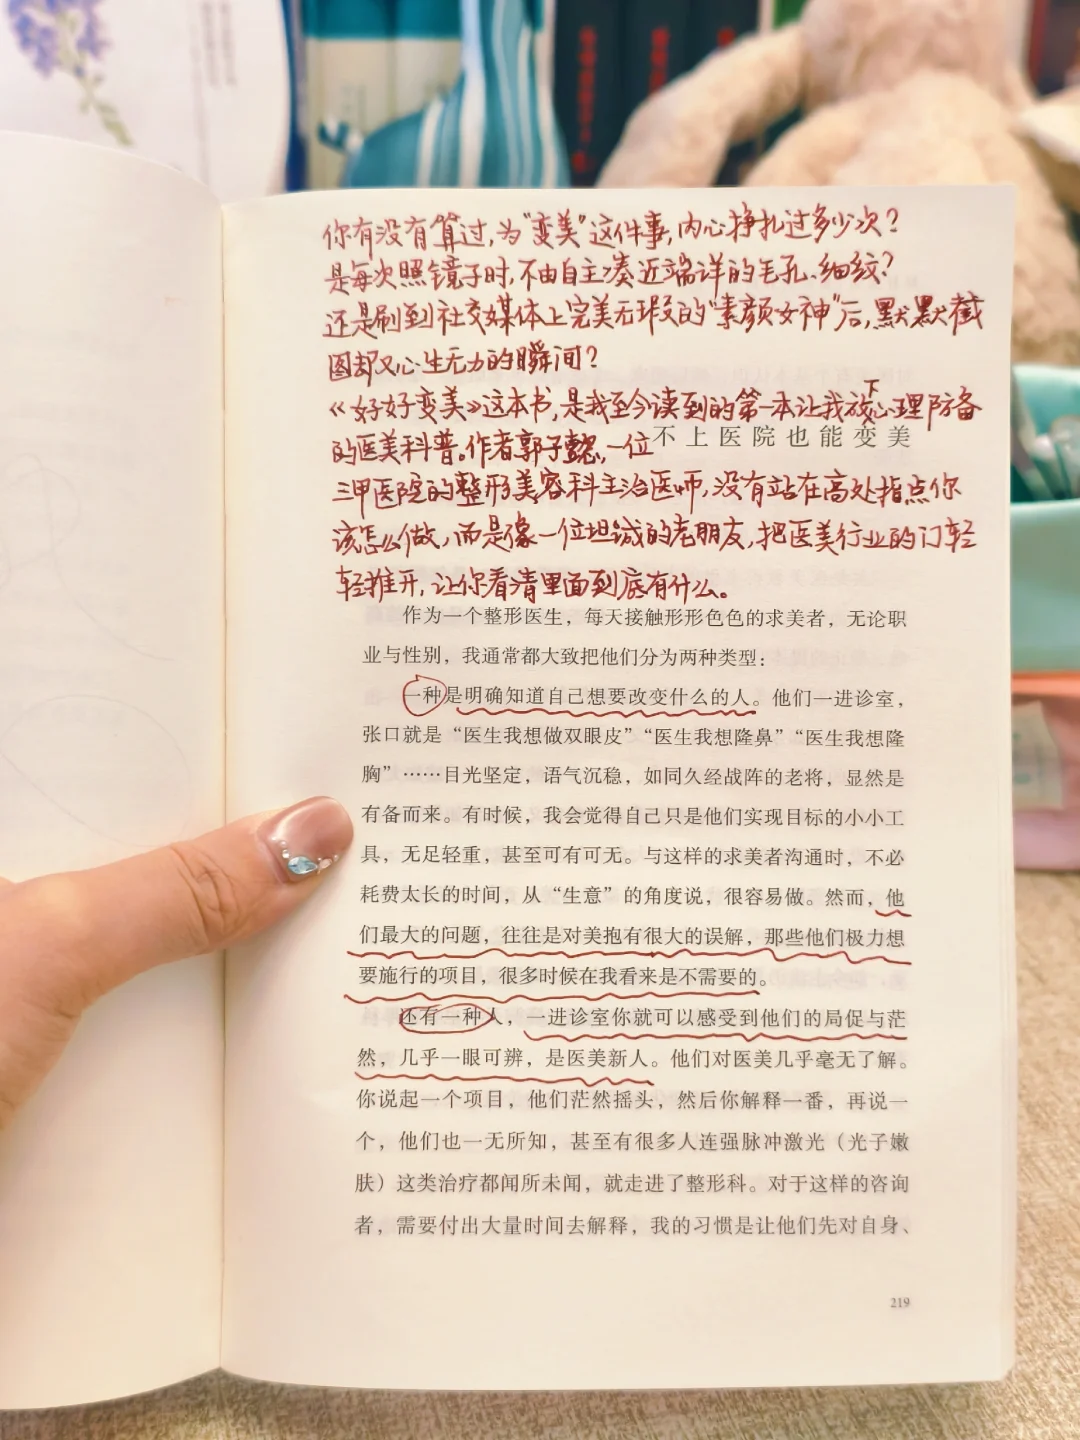 你有没有算过，为“变美”这件事，内心挣扎过多少次？
是每次照镜子时，不由自主凑近端详的毛孔、细纹？
还是刷到社交媒体上完美无瑕的“素颜女神”后，默默截
图却又心生无力的瞬间？
《好好变美》这本书，是我至今读到的第一本让我放下心理防备
的医美科普。作者郭子懿，一位
不上医院也能变美
三甲医院的整形美容科主治医师，没有站在高处指点你
该怎么做，而是像一位坦诚的老朋友，把医美行业的门轻
轻推开，让你看清里面到底有什么。
作为一个整形医生，每天接触形形色色的求美者，无论职
业与性别，我通常都大致把他们分为两种类型：
一种是明确知道自己想要改变什么的人。他们一进诊室，
张口就是“医生我想做双眼皮”“医生我想隆鼻”“医生我想隆
胸”……目光坚定，语气沉稳，如同久经战阵的老将，显然是
有备而来。有时候，我会觉得自己只是他们实现目标的小小工
具，无足轻重，甚至可有可无。与这样的求美者沟通时，不必
耗费太长的时间，从“生意”的角度说，很容易做。然而，他
们最大的问题，往往是对美抱有很大的误解，那些他们极力想
要施行的项目，很多时候在我看来是不需要的。
还有一种人，一进诊室你就可以感受到他们的局促与茫
然，几乎一眼可辨，是医美新人。他们对医美几乎毫无了解。
你说起一个项目，他们茫然摇头，然后你解释一番，再说一
个，他们也一无所知，甚至有很多人连强脉冲激光（光子嫩
肤）这类治疗都闻所未闻，就走进了整形科。对于这样的咨询
者，需要付出大量时间去解释，我的习惯是让他们先对自身、
219